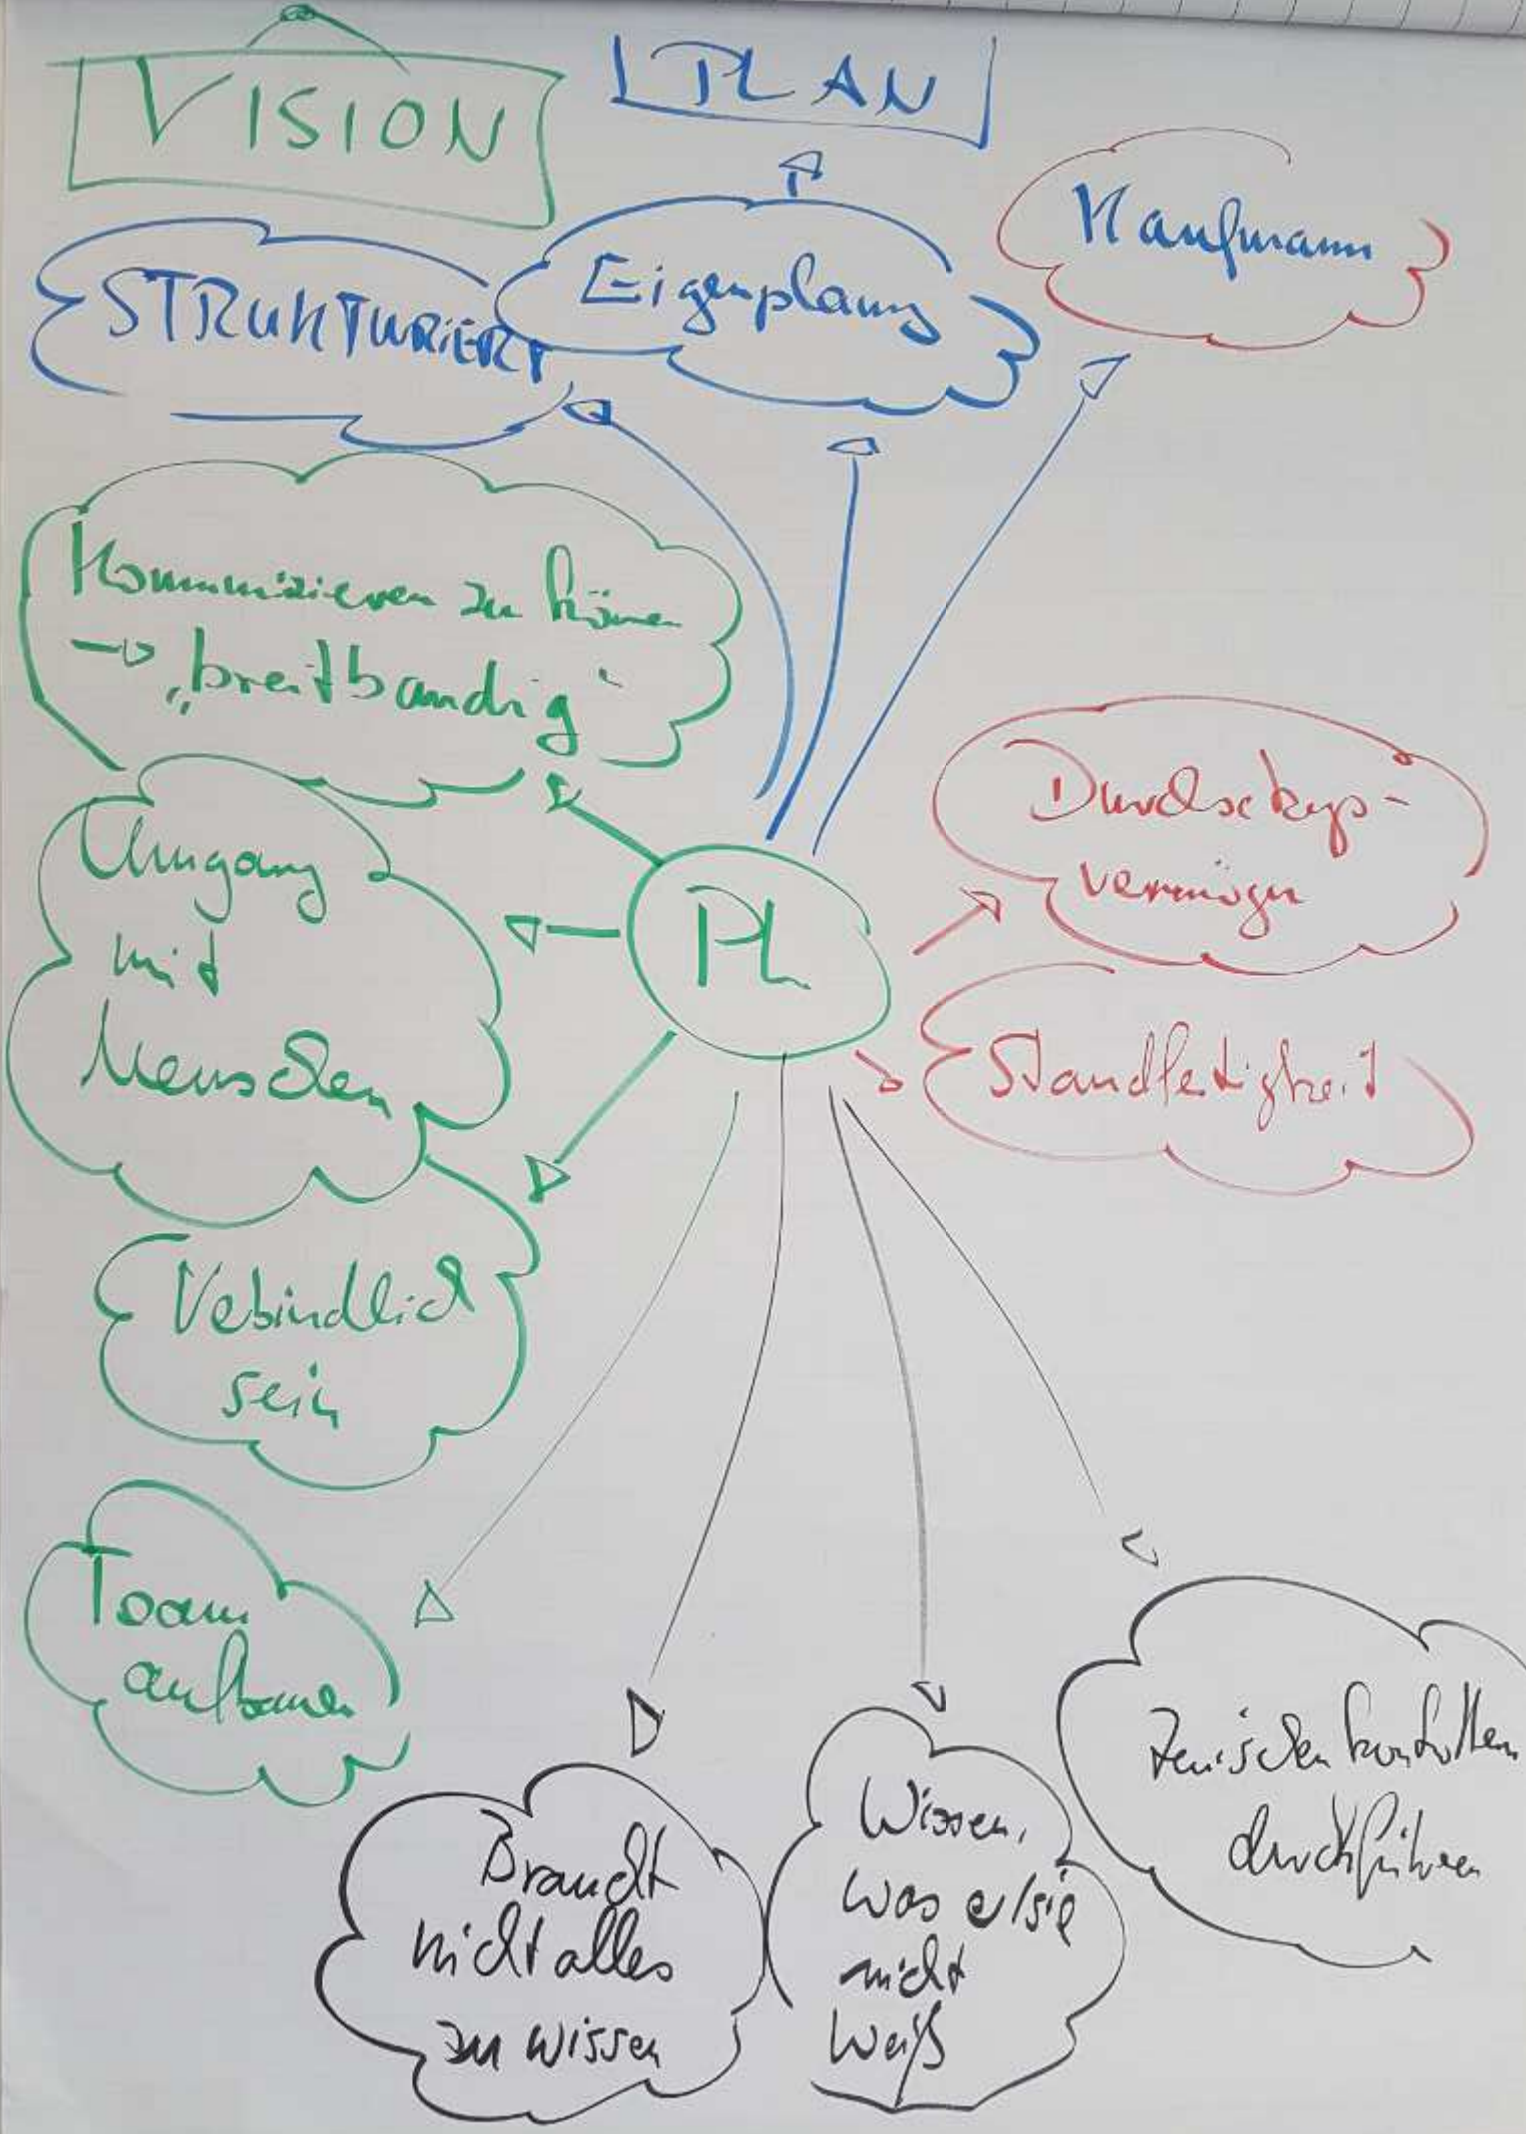 VISION
PLAN
STRUKTURIERT
Eigenplanung
Kaufmann
Kommunizieren zu können
→ „breitbandig“
Umgang
mit
Menschen
PL
Durchsetzungs-
vermögen
Standfetigkeit
Vebindlich
sein
Team
aufbauen
Braucht
nicht alles
zu wissen
Wissen,
was er/sie
nicht
weiß
Zwischenkontrollen
durchführen